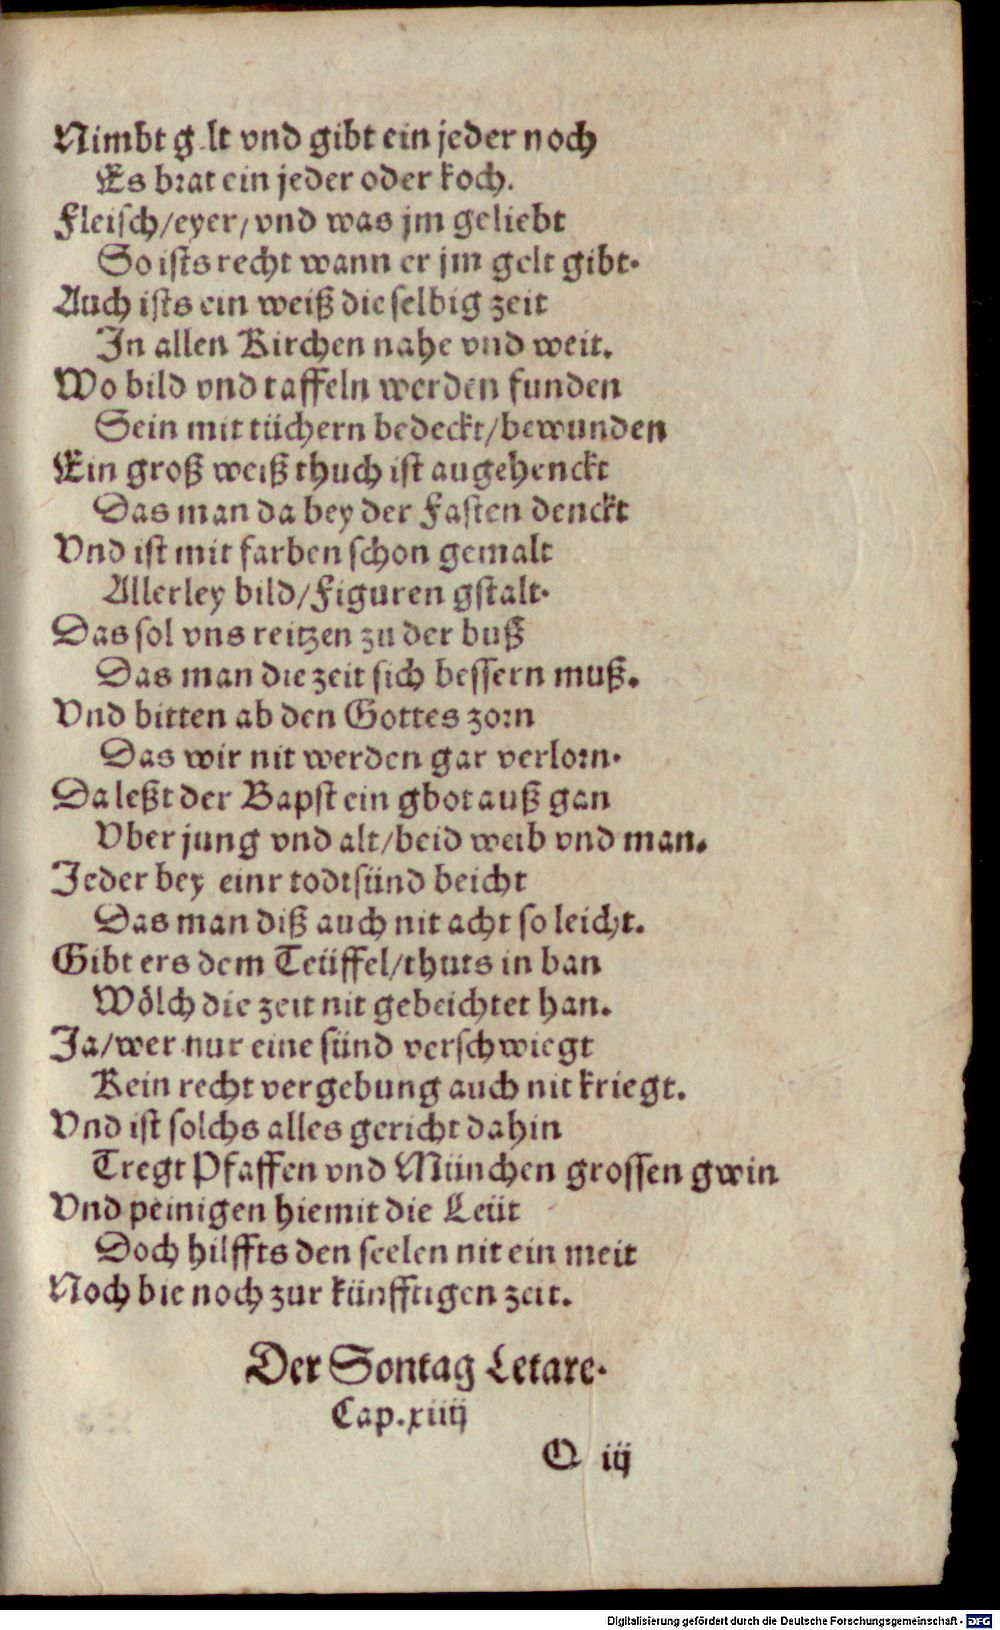 Nimbt g lt vnd gibt ein jeder noch
Es brat ein jeder oder koch.
Fleisch/eyer/vnd was jm geliebt
So ists recht wann er jm gelt gibt.
Auch ists ein weiß die selbig zeit
In allen Kirchen nahe vnd weit.
Wo bild vnd taffeln werden funden
Sein mit tüchern bedeckt/bewunden
Ein groß weiß thuch ist augehenckt
Das man da bey der Fasten denckt
Vnd ist mit farben schon gemalt
Allerley bild/Figuren gstalt.
Das sol vns reitzen zu der buß
Das man die zeit sich bessern muß.
Vnd bitten ab den Gottes zorn
Das wir nit werden gar verlorn.
Da leßt der Bapst ein gbot auß gan
Vber jung vnd alt/beid weib vnd man.
Jeder bey einr todtsünd beicht
Das man diß auch nit acht so leicht.
Gibt ers dem Teüffel/thuts in ban
Wölch die zeit nit gebeichtet han.
Ja/wer nur eine sünd verschwiegt
Kein recht vergebung auch nit kriegt.
Vnd ist solchs alles gericht dahin
Tregt Pfaffen vnd München grossen gwin
Vnd peinigen hiemit die Leüt
Doch hilffts den seelen nit ein meit
Noch hie noch zur künfftigen zeit.
Der Sontag Letare.
Cap. xiiij
Q iij
Digitalisierung gefördert durch die Deutsche Forschungsgemeinschaft - DFG